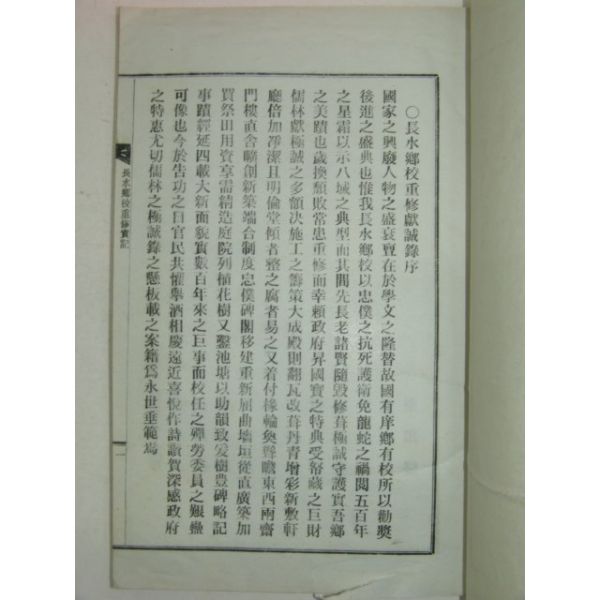 ○長水鄉校重修獻誠錄序
國家之興廢人物之盛衰亶在於學文之隆替故國有庠鄉有校所以勸奬
後進之盛典也惟我長水鄉校以忠僕之抗死護衛免龍蛇之禍閱五百年
之星霜以示八域之典型而其間先長老諸賢隨毁修葺極誠守護實吾鄉
之美蹟也歲換頹敗常患重修而幸賴政府昇國寶之特典受帑藏之巨財
儒林獻極誠之多額決施工之籌策大成殿則翻瓦改葺丹靑增彩新敷軒
廳倍加凈潔且明倫堂傾者整之腐者易之又着付椽輪奐聳瞻東西兩齋
門樓直舍曠創新築端合制度忠僕碑閣移建重新屈曲墻垣從直廣築加
買祭田用資享需精造庭院列植花樹又鑿池塘以助韻致爰樹豊碑略記
事蹟經延四載大新面貌實數百年來之巨事而校任之殫勞委員之艱
可像也今於告功之日官民共懽擧酒相慶遠近喜悅作詩頌賀深感政府
之特惠尤切儒林之極誠錄之懸板載之案籍爲永世垂範焉
長水鄉校重修實記
一